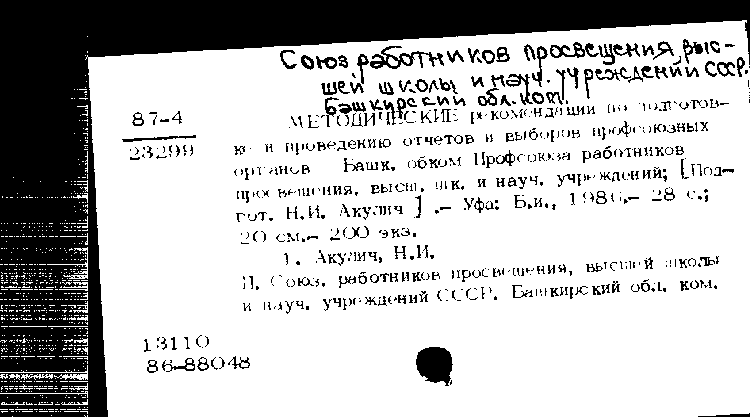 Союз работников просвещения выс-
шей школы и науч. учреждений СССР.
Башкирский обл. ком.
87-4
23299
МЕТОДИЧЕСКИЕ рекомендации по подготов-
ке и проведению отчетов и выборов профсоюзных
органов Башк. обком Профсоюза работников
просвещения, высш. шк. и науч. учреждений; [Под-
гот. Н.И. Акулич ] .– Уфа: Б.и., 1986.– 28 с.;
20 см.– 200 экз.
1. Акулич, Н.И.
П. Союз. работников просвещения, высшей школы
и науч. учреждений СССР. Башкирский обл. ком.
13110
86-88048